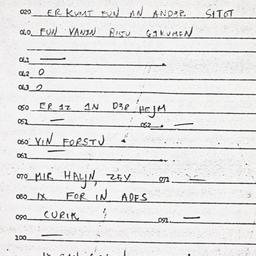 020 ER KUMT FUN AN ANDER SITOT
010 FUN VANIN BISTU GIKUMEN
011 —
012 0
013 2
050 ER IZ IN DER HEJM
051 — 052 —
060 VIN FORSTU
061 —
070 MIR HALJN, ZEY 071 —
080 IX FOR IN ADES
090 CURIK 091 —
100 —